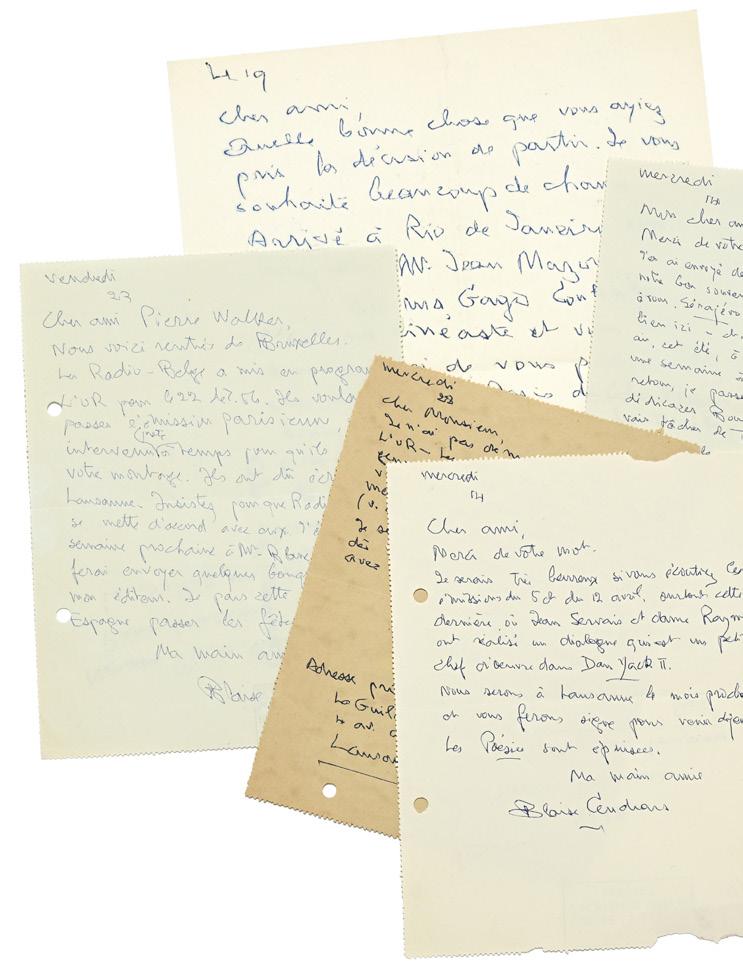 Le 19
Cher ami
Quelle bonne chose que vous ayiez
pris la décision de partir. Je vous
souhaite beaucoup de chan
Arrivé à Rio de Janeiro
Mr. Jean Manzon
Cont
inéaste et v
de vous p
mercredi
Mon cher am
Merci de votre
J'en ai envoyé de
notre bon souven
à vous. Sérajévo
bien ici - de
au, cet été, à
une semaine à
retour, je passe
dédicacer Bou
vais tâcher de
vendredi
23
Cher ami Pierre Walker,
Nous voici rentrés de Bruxelles.
La Radio-Belge a mis en program
L'OR pour le 22 déc. 56. Ils voula
passer l'émission parisienne,
intervenu à temps pour qu'ils
votre montage. Ils ont dû écri
Lausanne. Insistez pour que Radi
se mette d'accord avec eux. J'é
semaine prochaine à Mr.
ferai envoyer quelques bouq
mon éditeur. Je pars cette
Espagne passer les fêtes
Ma main am
Blaise
mercredi
28
Cher Monsieur
Je n'ai pas
L'OR - Le
(v.
Je se
dès
avez
Adresse pri
La Guil
4 av. d
Lausan
mercredi
14
Cher ami,
Merci de votre mot.
Je serais très heureux si vous écoutiez les
émissions du 5 et du 12 avril, surtout cette
dernière où Jean Servais et dame Raym
ont réalisé un dialogue qui est un petit
chef d'oeuvre dans Dan Yack II.
Nous serons à Lausanne le mois procha
et vous ferons signe pour venir déjeu
Les Poésies sont épuisées.
Ma main amie
Blaise Cendrars